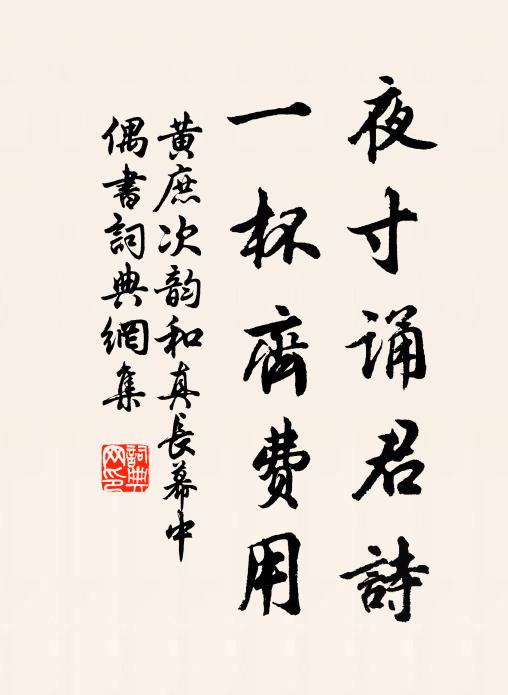 夜寸誦君詩
一杯齊費用
黄庶次韵和真長幕中
偶書詞典網集
詞典网印